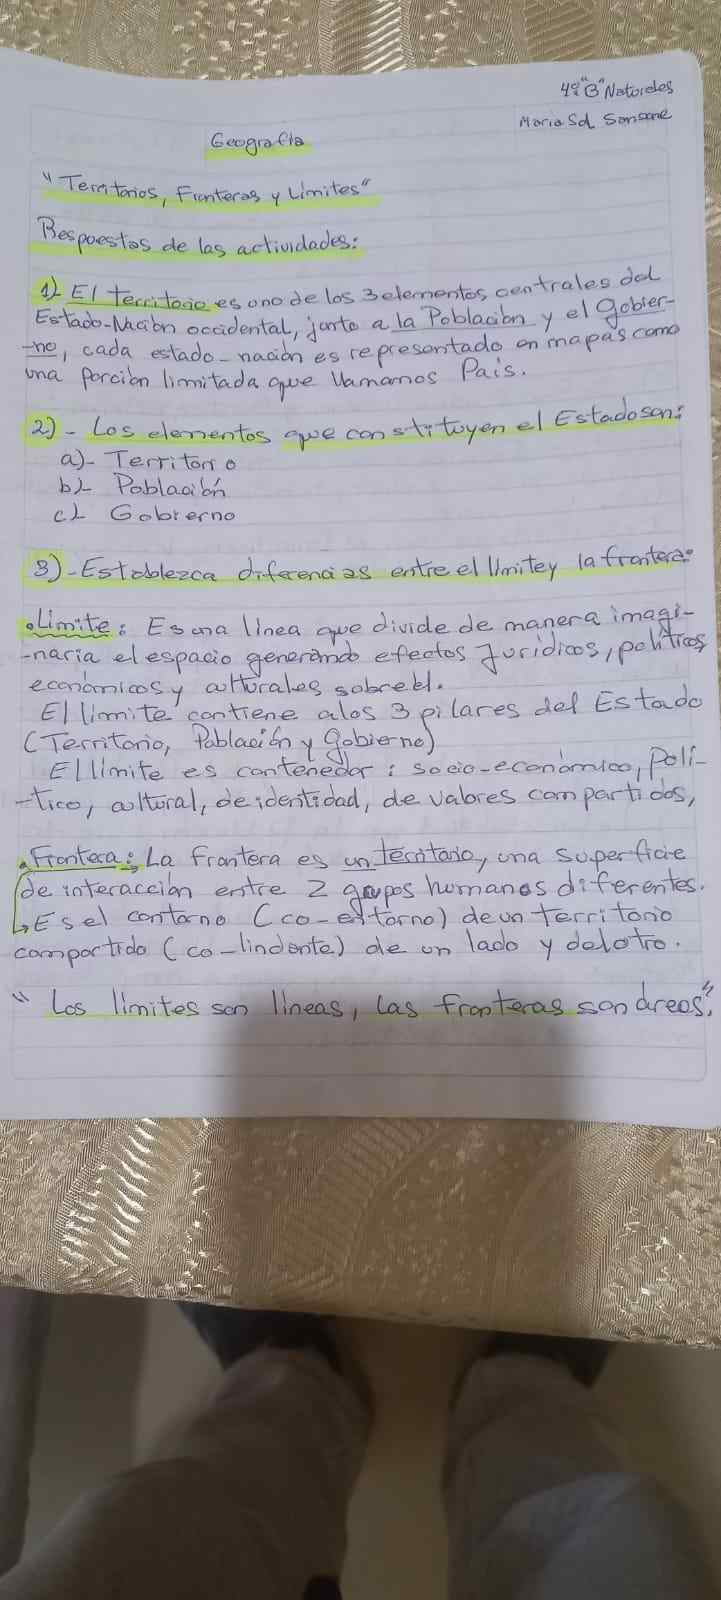 4º "B" Naturales
Maria Sol Sansone
Geografía
"Territorios, Fronteras y Límites"
Respuestas de las actividades:
1) El territorio es uno de los 3 elementos centrales del
Estado-Nación occidental, junto a la Población y el Gobier-
-no, cada estado-nación es representado en mapas como
una porción limitada que llamamos País.
2)- Los elementos que constituyen el Estado son:
a)- Territorio
b)- Población
c)- Gobierno
3)- Establezca diferencias entre el límite y la frontera:
• Límite: Es una línea que divide de manera imagi-
-naria el espacio generando efectos Jurídicos, políticos
económicos y culturales sobre el.
El límite contiene a los 3 pilares del Estado
(Territorio, Población y gobierno)
El límite es contenedor: socio-económico, polí-
-tico, cultural, de identidad, de valores compartidos,
• Frontera: La frontera es un territorio, una superficie
de interacción entre 2 grupos humanos diferentes.
↳ Es el contorno (co-entorno) de un territorio
compartido (co-lindante) de un lado y del otro.
"Los límites son líneas, las fronteras son áreas".